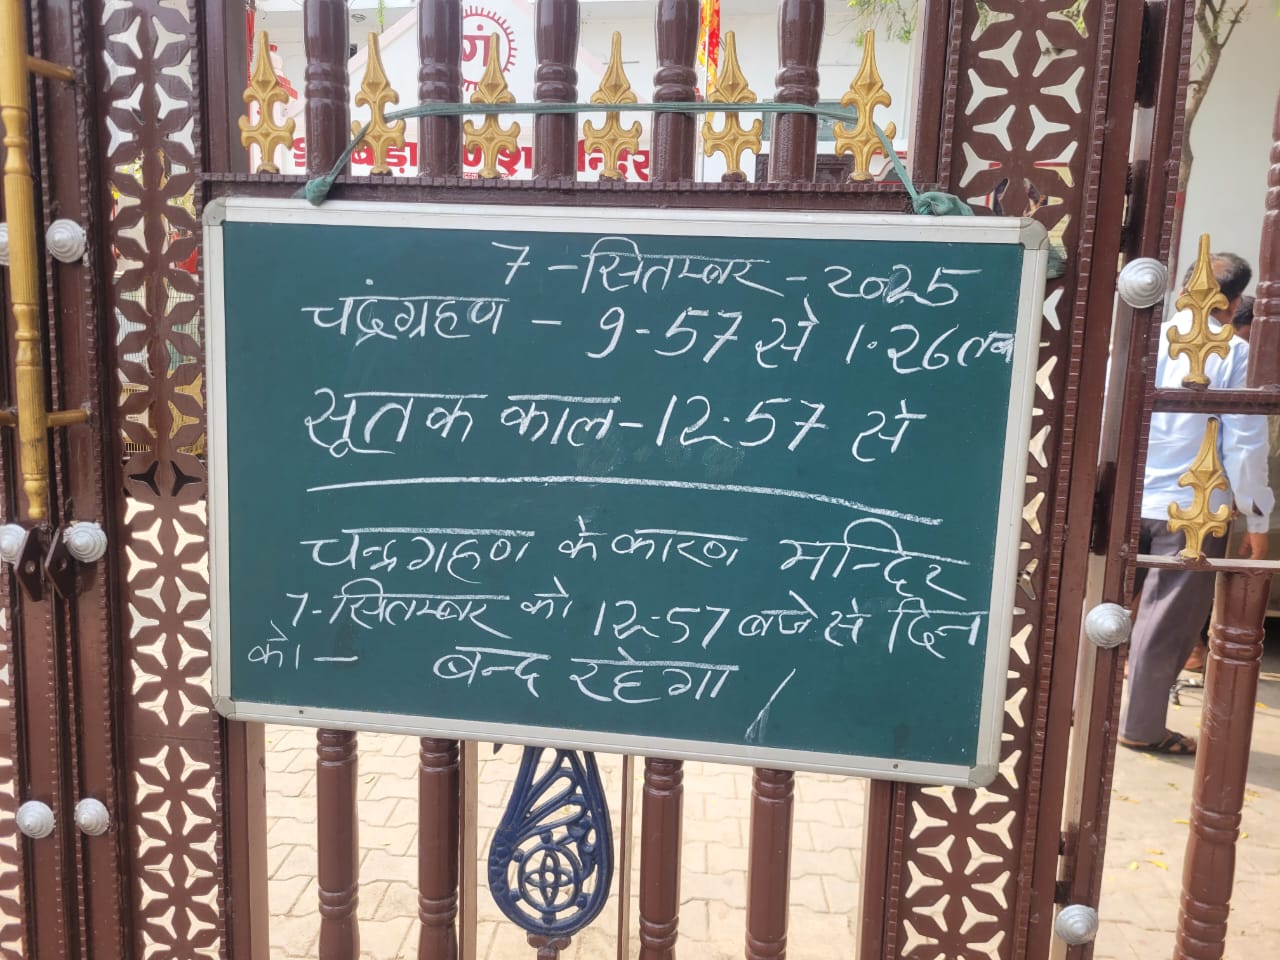 गं
बड़ा गणेश मन्दिर
7 - सितम्बर - 2025
चंद्रग्रहण - 9-57 से 1.26 तक
सूतक काल - 12:57 से
चन्द्रग्रहण के कारण मन्दिर
7-सितम्बर को 12:57 बजे से दिन
को - बन्द रहेगा /